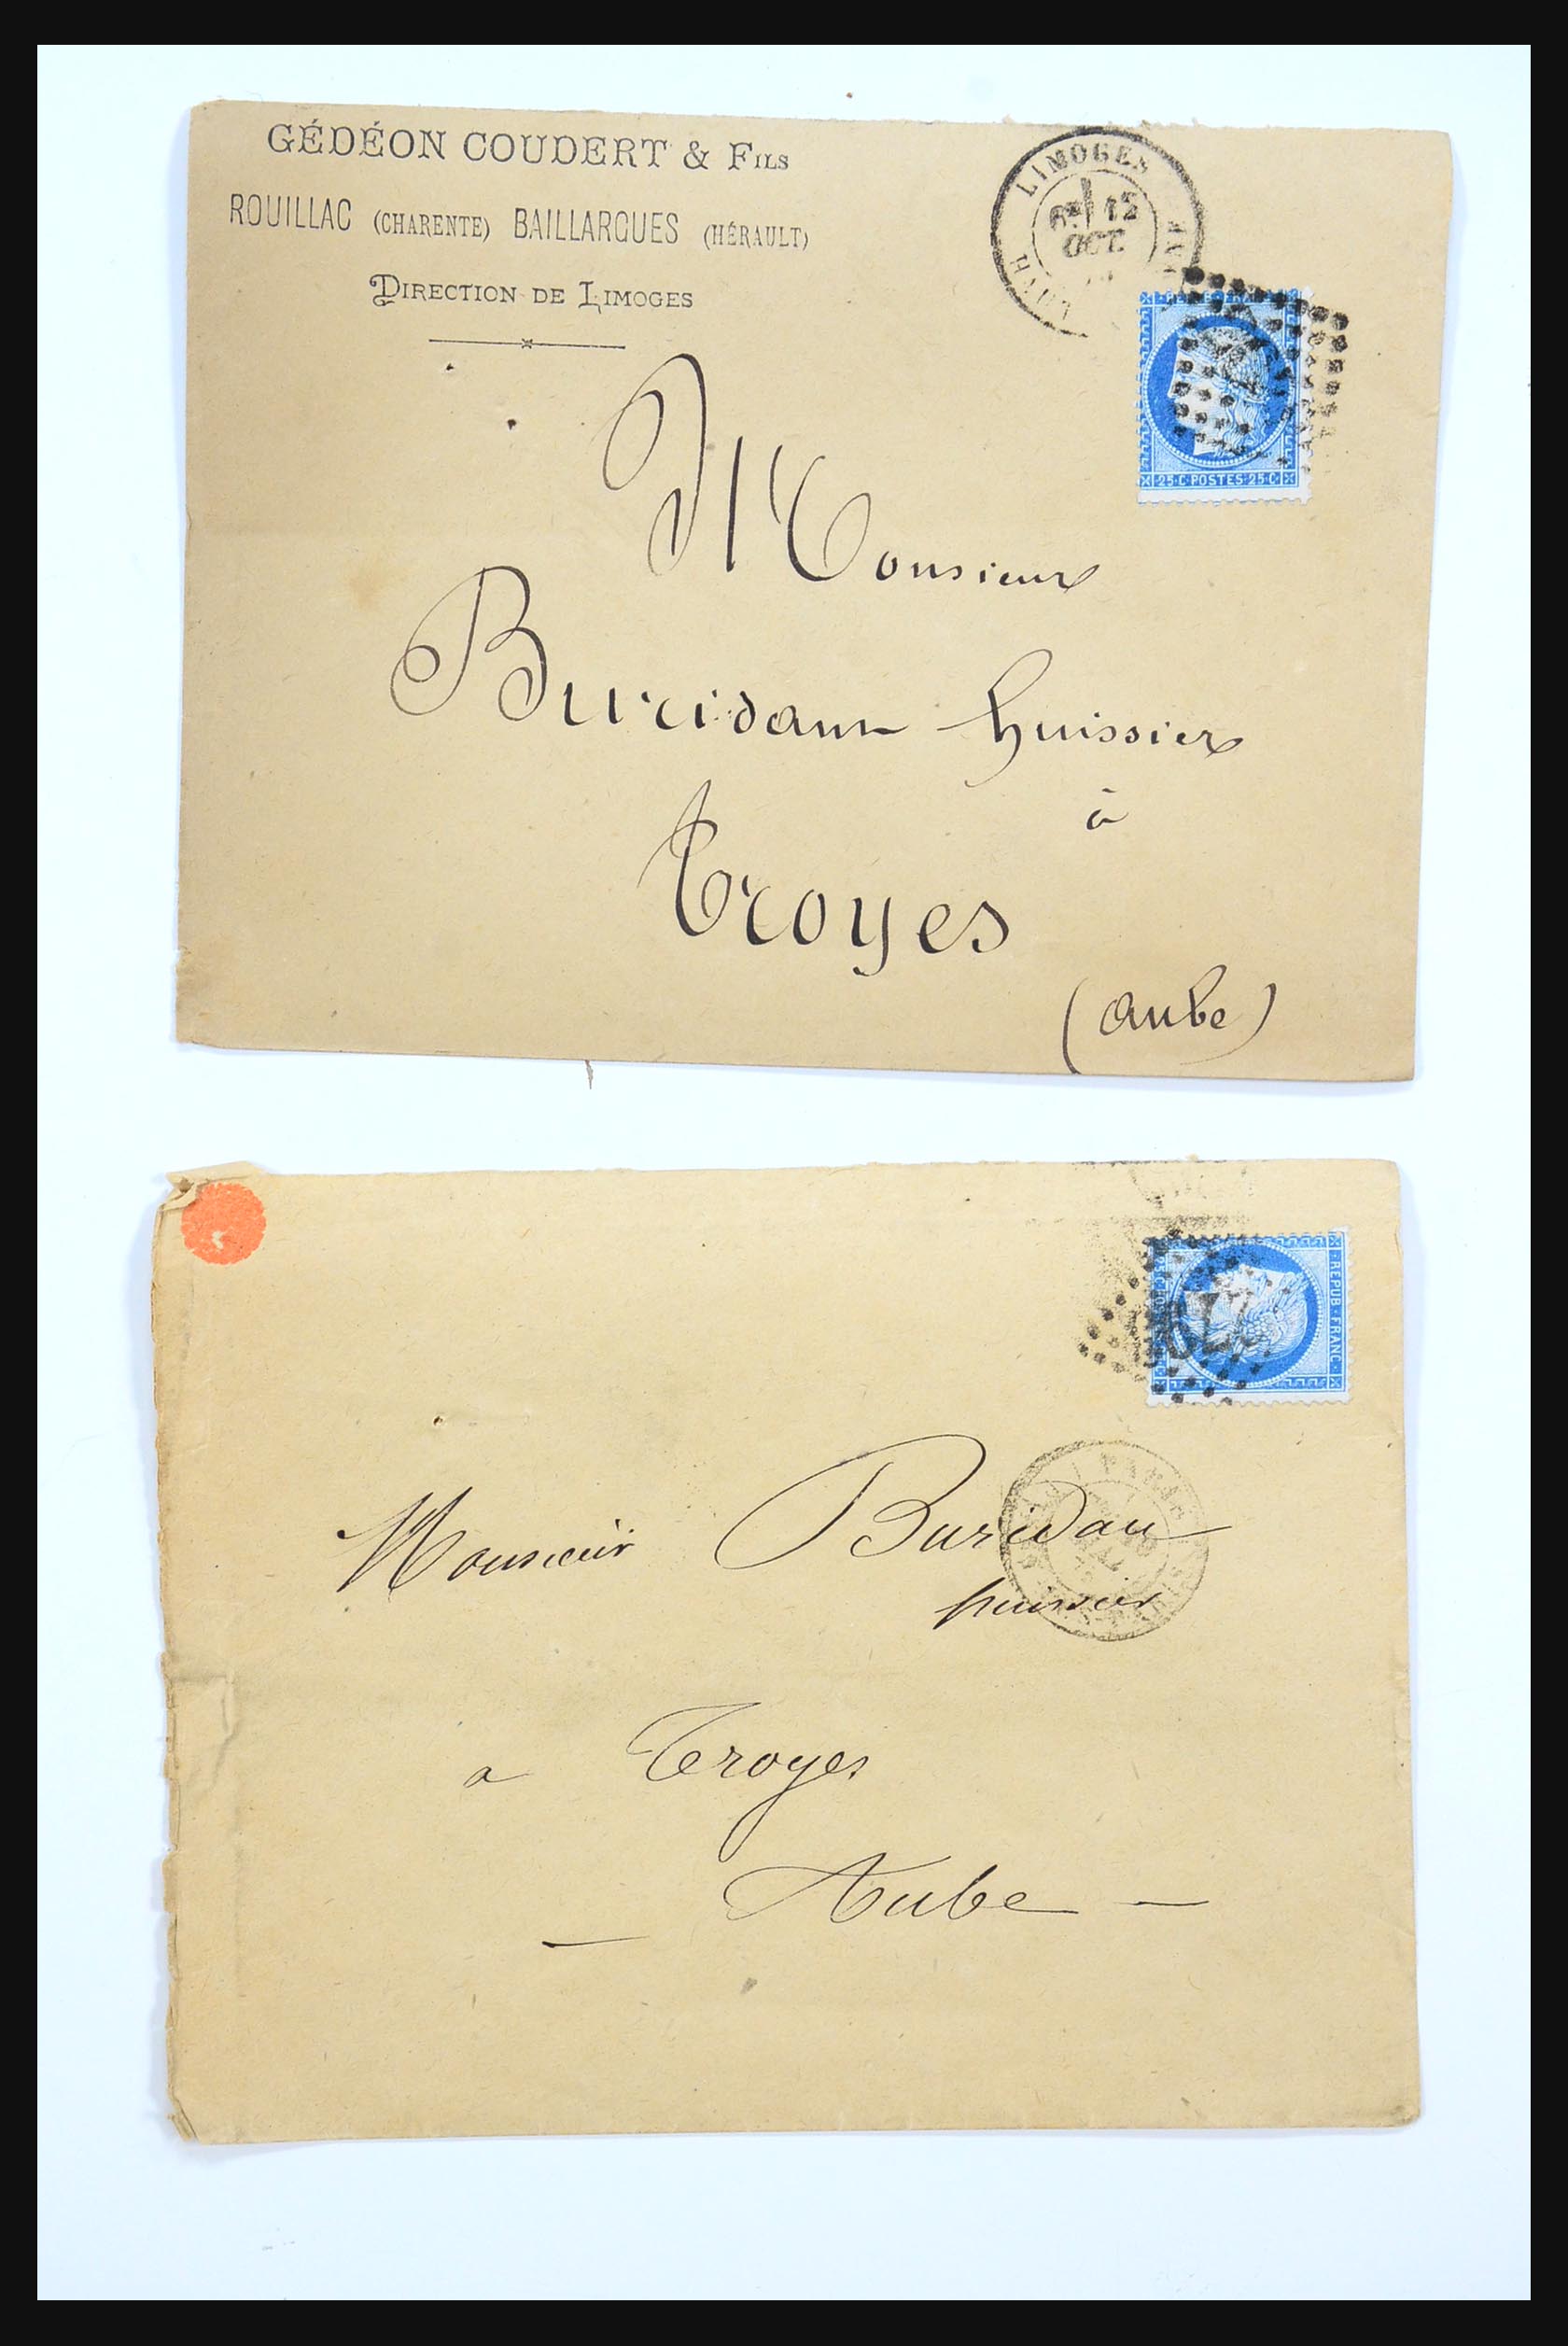 GÉDÉON COUDERT & FILS
ROUILLAC (CHARENTE) BAILLARGUES (HÉRAULT)
DIRECTION DE LIMOGES
LIMOGES
12
OCT.
REPUB FRANC
25·C·POSTES·25·C·
Monsieur
Buridan huissier
à
Troyes
(Aube)
REPUB·FRANC·
Monsieur Buridan
huissier
a Troyes
Aube —